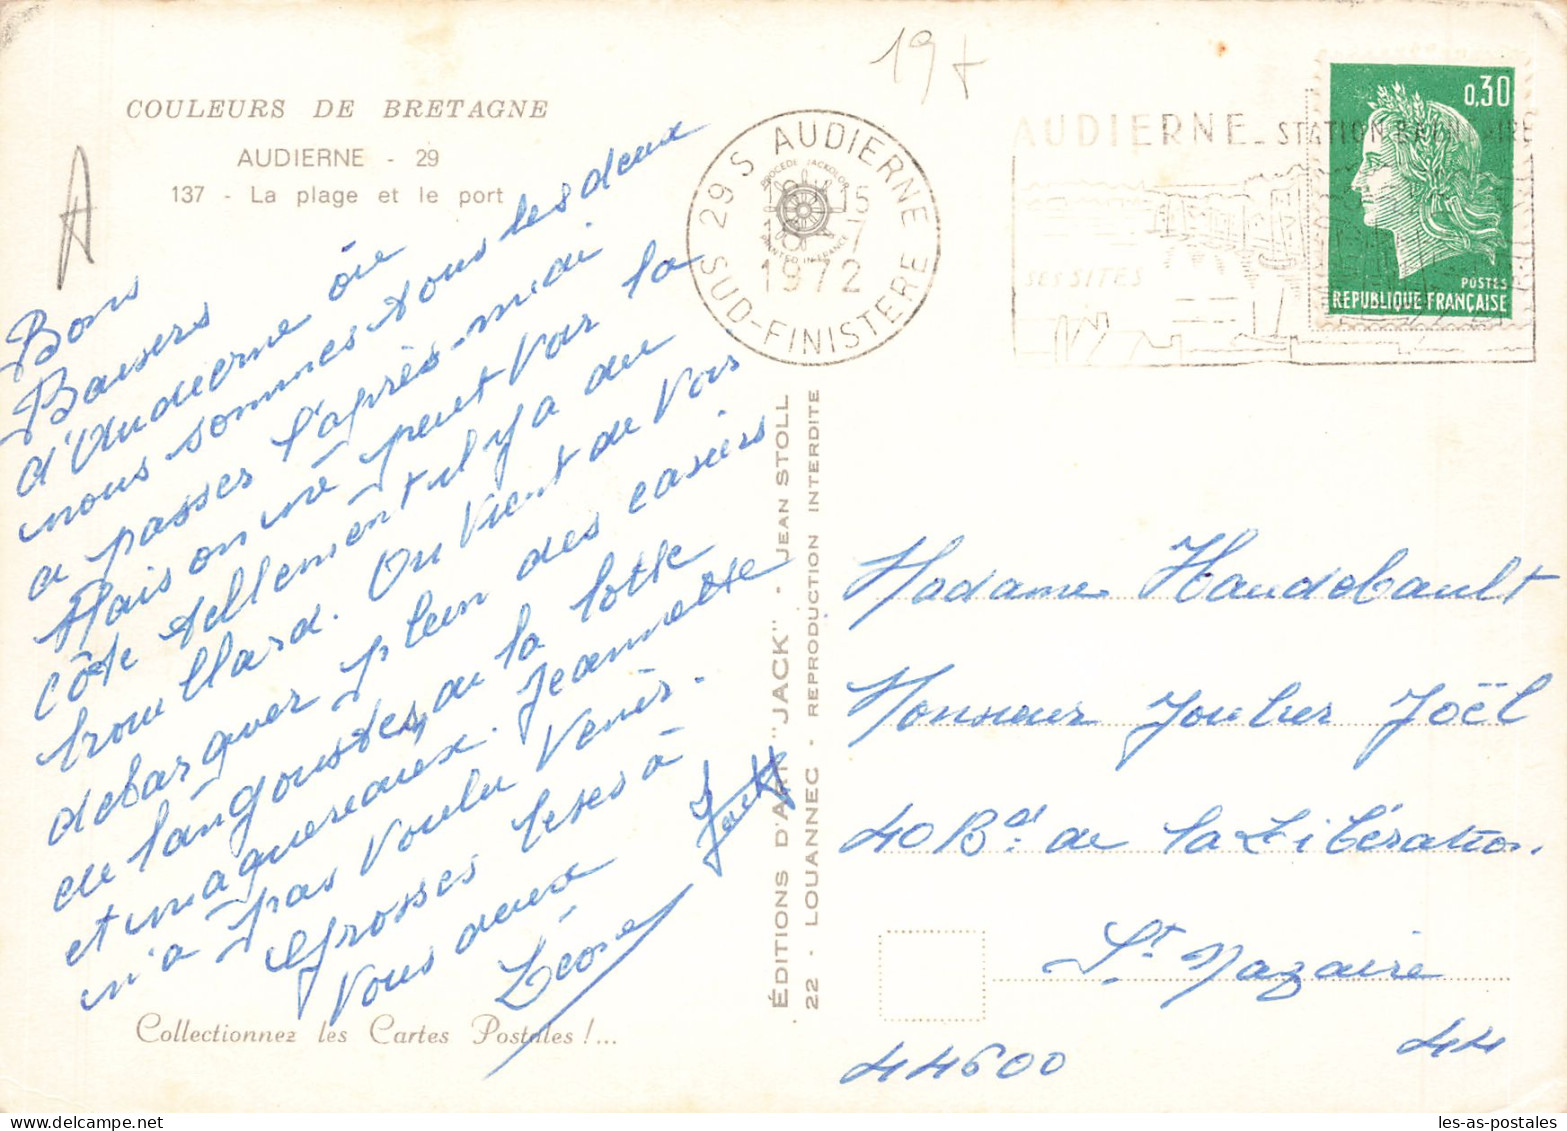 COULEURS DE BRETAGNE
AUDIERNE - 29
137 - La plage et le port
A
19+
29 S AUDIERNE
SUD-FINISTERE
15
18 - 7
1972
PROCEDE JACKOLOR
PRINTED IN FRANCE
AUDIERNE - STATION BALNEAIRE
SES SITES
0,30
POSTES
REPUBLIQUE FRANÇAISE
Bons
Baisers
d'Audierne ou
nous sommes tous les deux
a passer l'après-midi
Mais on ne peut voir la
côte tellement il y a du
brouillard. On vient de voir
debarquer plein des casiers
de langoustes, de la lotte
et maquereaux. Jeannette
n'a pas voulu venir.
Grosses bises à
vous deux
Léone Jack
Collectionnez les Cartes Postales !...
ÉDITIONS D'ART "JACK" - JEAN STOLL
22 - LOUANNEC - REPRODUCTION INTERDITE
Madame Haudebault
Monsieur Joulier Joël
40 Bd. de la Libération.
St Nazaire
44600 44
les-as-postales